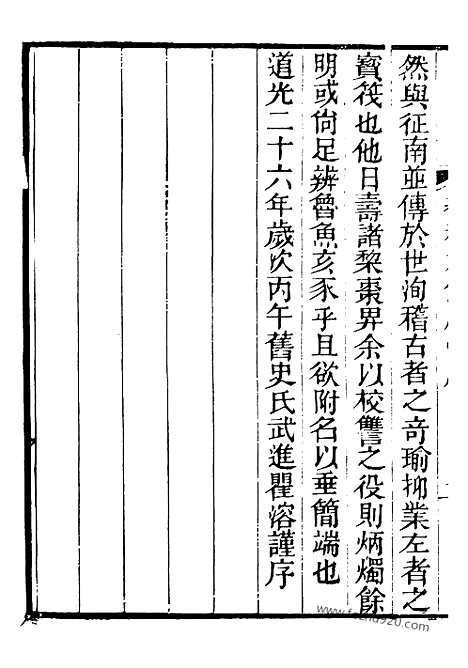 然與征南並傳於世洵稽古者之奇瑜抑業左者之
寶筏也他日壽諸棃棗畀余以校讐之役則炳燭餘
明或尙足辨魯魚亥豕乎且欲附名以垂簡端也
道光二十六年歲次丙午舊史氏武進瞿溶謹序